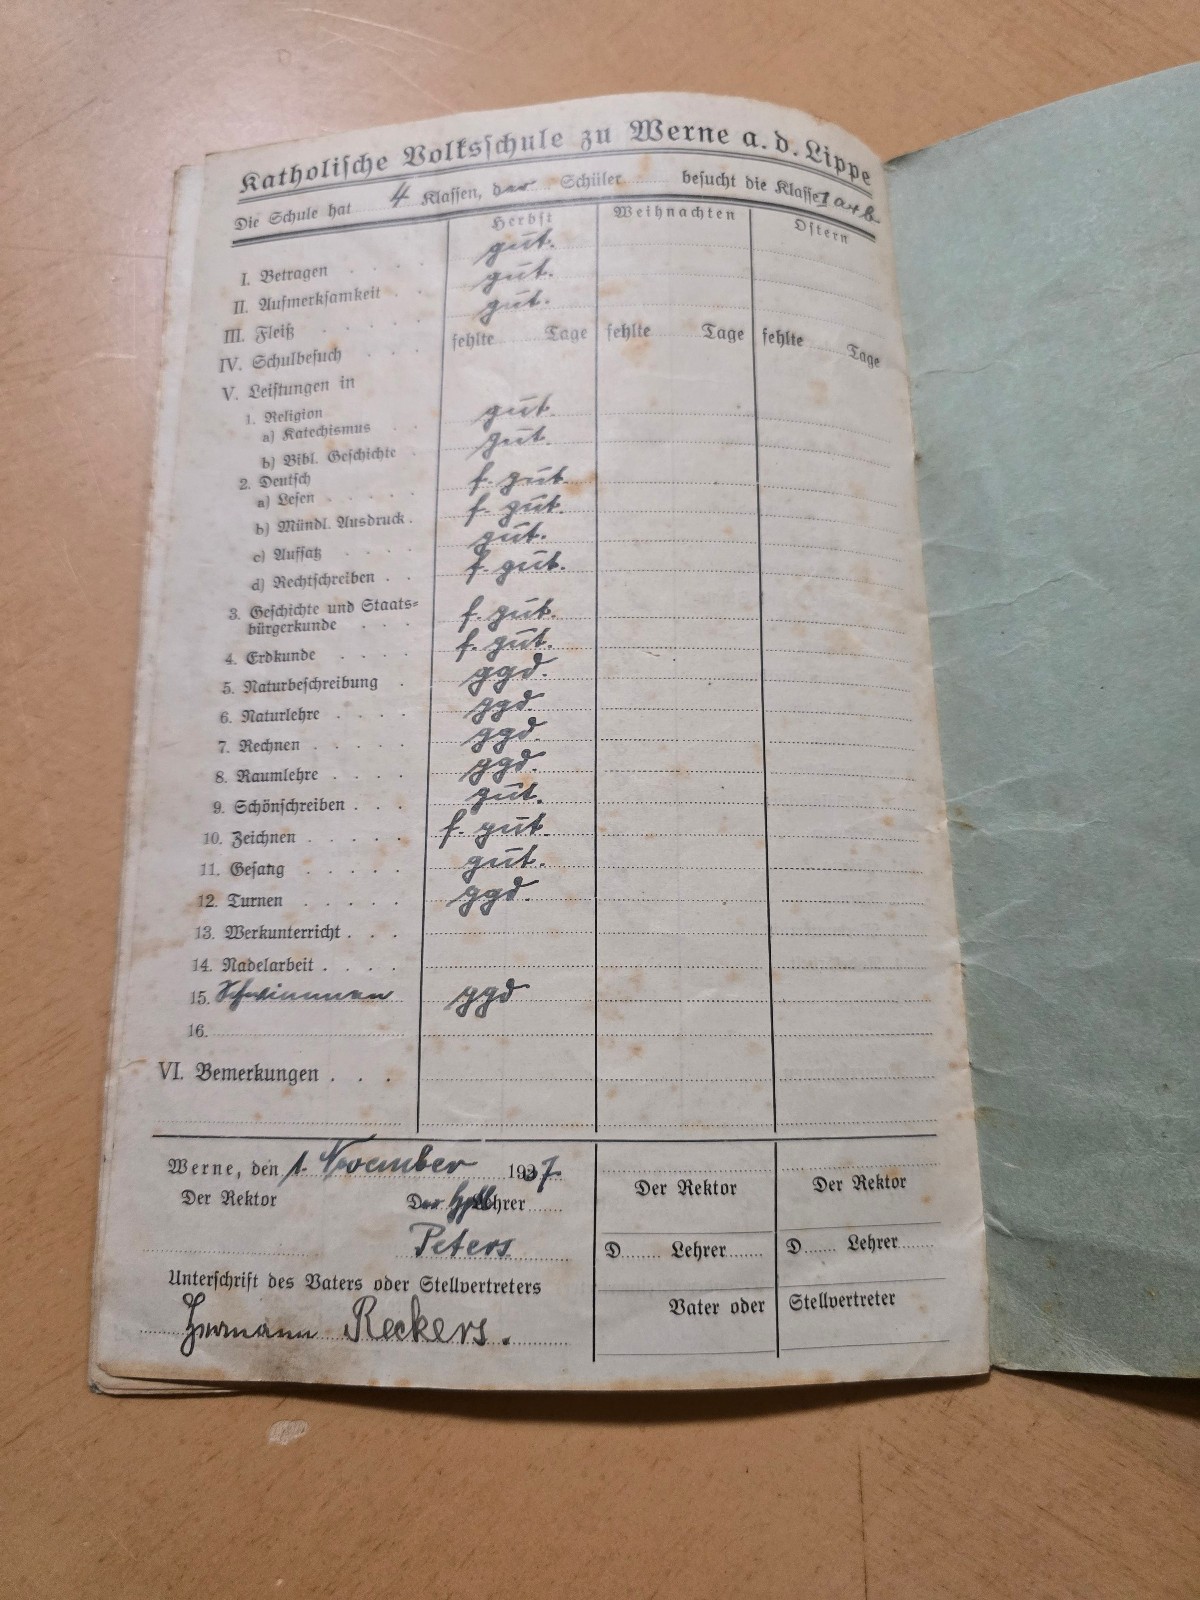 Katholische Volksschule zu Werne a. d. Lippe
Die Schule hat 4 Klassen, der Schüler besucht die Klasse 1 a + b.
Herbst Weihnachten Ostern
I. Betragen . . . . gut.
II. Aufmerksamkeit . . gut.
III. Fleiß . . . . gut.
IV. Schulbesuch . . . fehlte Tage fehlte Tage fehlte Tage
V. Leistungen in
1. Religion
a) Katechismus . . gut.
b) Bibl. Geschichte . gut.
2. Deutsch
a) Lesen . . . . . f. gut.
b) Mündl. Ausdruck . f. gut.
c) Aufsatz . . . . gut.
d) Rechtschreiben . . f. gut.
3. Geschichte und Staats-
bürgerkunde . . . f. gut.
4. Erdkunde . . . . f. gut.
5. Naturbeschreibung . ggd.
6. Naturlehre . . . . ggd.
7. Rechnen . . . . . ggd.
8. Raumlehre . . . . ggd.
9. Schönschreiben . . . gut.
10. Zeichnen . . . . . f. gut.
11. Gesang . . . . . gut.
12. Turnen . . . . . ggd.
13. Werkunterricht . . .
14. Nadelarbeit . . . .
15. Schwimmen ggd
16.
VI. Bemerkungen . . .
Werne, den 1. November 1937.
Der Rektor Der Lehrer Der Rektor Der Rektor
Peters D Lehrer D Lehrer
Unterschrift des Vaters oder Stellvertreters Vater oder Stellvertreter
Hermann Reckers.